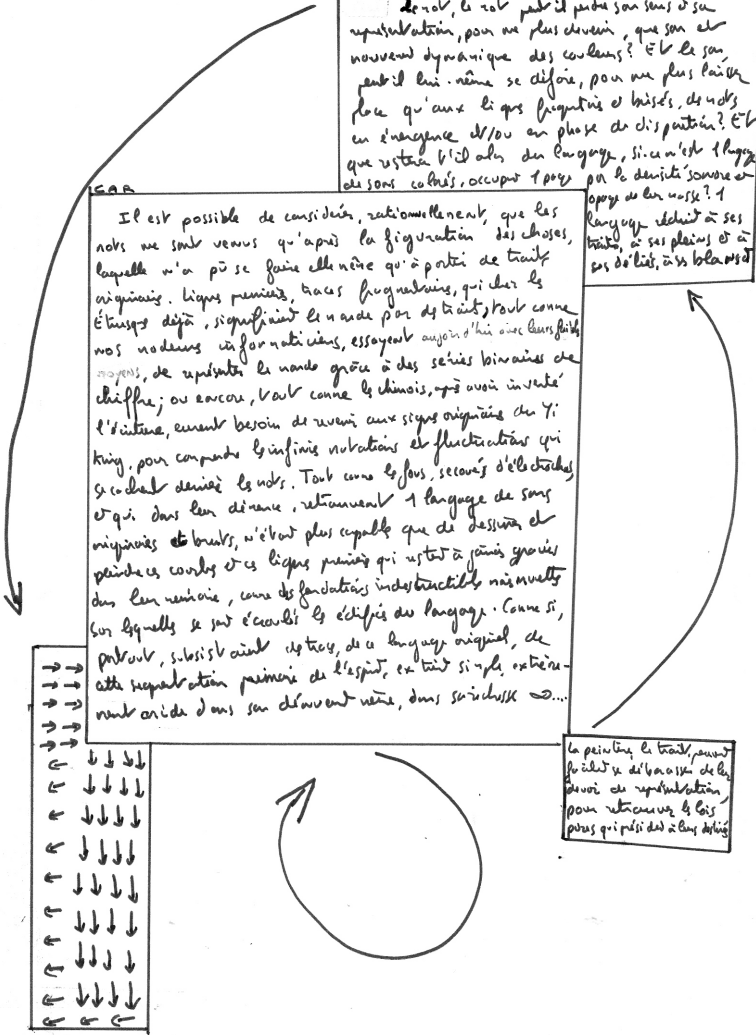 le mot, le mot peut il perdre son sens et sa
représentation, pour ne plus devenir, que son et
mouvement dynamique des couleurs? Et le son,
peut il lui-même se défaire, pour ne plus laisser
place qu'aux lignes fragmentaires et brisées, de mots
en émergence et/ou en phase de disparition? Et
que restera t'il alors du langage, si ce n'est 1 langage
de sons colorés, occupant 1 page par la densité sonore et
opaque de leur masse? 1
langage réduit à ses
traits, à ses pleins et à
ses déliés, à ses blancs et
CAR
Il est possible de considérer, rationnellement, que les
mots ne sont venus qu'après la figuration des choses,
laquelle n'a pû se faire elle même qu'à partir de trait
originaire. Lignes premières, traces fragmentaires, qui chez les
Étrusques déjà, signifiaient le monde par des traits, tout comme
nos modernes informaticiens, essayent aujourd'hui avec leurs faibles
moyens, de représenter le monde grâce à des séries binaires de
chiffre; ou encore, tout comme les chinois, après avoir inventé
l'écriture, eurent besoin de revenir aux signes originaires du Yi
king, pour comprendre les infinies mutations et fluctuations qui
se cachent derrière les mots. Tout comme les fous, secoués d'électrochocs,
et qui dans leur démence, retrouvent 1 langage de sons
originaires et bruts, n'étant plus capable que de dessiner et
peindre ces courbes et ces lignes premières qui restent à jamais gravées
dans leur mémoire, comme des fondations indestructibles mais muettes
sur lesquelles se sont écroulés les édifices du langage. Comme si,
partout, subsistaient des traces, de ce langage originel, de
cette segmentation primaire de l'esprit, ce trait simple, extrême-
ment aride dans son dénuement même, dans sa richesse ∞....
La peinture, le trait, peuvent
se débarasser de leur
devoir de représentation,
pour retrouver les lois
pures qui président à leurs destinées